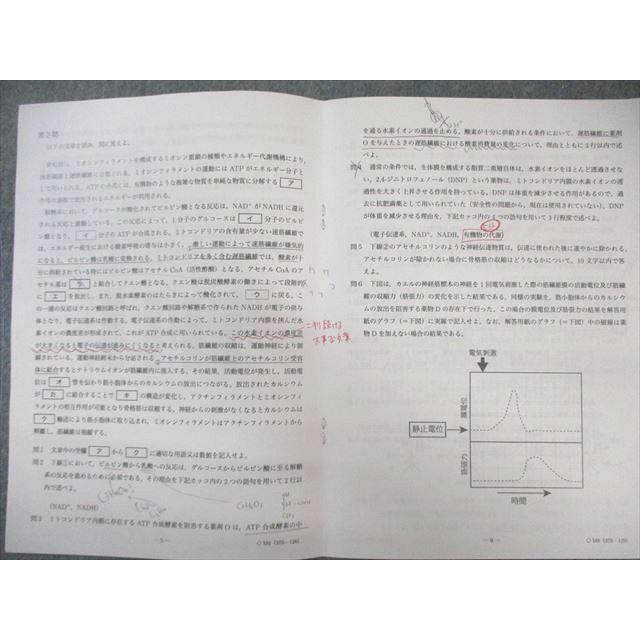 第2問
以下の文章を読み,問に答えよ。
して用いられる。ATP の不足には,有機物のような複雑な物質を単純な物質に分解する ア や
作用の過程で放出されるエネルギーが利用される。
解糖系において,グルコースが酸化されてピルビン酸となる反応は,NAD⁺ が NADH に還元
される反応と連動している。この反応によって,1分子のグルコースは イ 分子のピルビ
ン酸となり, イ 分子の ATP が合成される。ミトコンドリアの含有量が少ない速筋繊維で
は,エネルギー産生における酸素呼吸の寄与は小さく,激しい運動によって速筋繊維が嫌気的
になると,ピルビン酸は乳酸に変換される。ミトコンドリアを多く含む遅筋繊維では,酸素が十
分に供給されている時にはピルビン酸はアセチル CoA(活性酢酸)となる。アセチル CoA のア
セチル基は ラ と結合してクエン酸となる。クエン酸は脱炭酸酵素の働きによって段階的
に エ を放出し,また,脱水素酵素のはたらきによって酸化されて, ウ に戻る。こ
の一連の反応はクエン酸回路と呼ばれ,クエン酸回路や解糖系で作られた NADH が電子の供与
体となり,電子伝達系は作動する。電子伝達系の作動によって,ミトコンドリア内膜を挟んだ水
素イオンの濃度差が形成されて,これが ATP 合成に用いられる。この水素イオンの濃度差
が大きくなると電子の伝達が進みにくくなると考えられる。筋繊維の収縮は,運動神経により制
御されている。運動神経終末から分泌されるアセチルコリンが筋繊維上のアセチルコリン受容
体に結合するとナトリウムイオンが筋繊維内に流入する。その結果,活動電位が発生し,活動電
位は オ 管を伝わり筋小胞体からのカルシウムの放出につながる。放出されたカルシウム
が カ に結合することで キ の構造が変化し,アクチンフィラメントとミオシンフィ
ラメントの相互作用が可能となり骨格筋は収縮する。神経からの刺激がなくなるとカルシウムは
ク 輸送により筋小胞体に取り込まれ,ミオシンフィラメントはアクチンフィラメントから
解離し,筋繊維は弛緩する。
問1 文章中の空欄 ア から ク に適切な用語又は数値を記入せよ。
問2 下線①において,ピルビン酸から乳酸への反応は,グルコースからピルビン酸に至る解糖
系の反応を進めるために必要である。その理由を下記カッコ内の2つの語句を用いて3行以
内で述べよ。
(NAD⁺, NADH)
問3 ミトコンドリア内膜に存在する ATP 合成酵素を阻害する薬剤 O は,ATP 合成酵素の中
― 5 ―
◇M6(378―126)
を通る水素イオンの通過を止める。酸素が十分に供給される条件において,遅筋繊維に薬剤
O を与えたときの遅筋繊維における酸素消費量の変化について,理由とともに3行以内で述
べよ。
問4 通常の条件では,生体膜を構成する脂質二重層自体は,水素イオンをほとんど透過させな
い。2,4-ジニトロフェノール(DNP)という薬物は,ミトコンドリア内膜の水素イオンの透
過性を大きく上昇させる作用を持っている。DNP は体重を減少させる作用があるので,過
去に抗肥満薬として用いられていた(安全性の問題から,現在は使用されていない)。DNP
が体重を減少させる理由を,下記カッコ内の4つの語句を用いて3行程度で述べよ。
(電子伝達系,NAD⁺,NADH,有機物の代謝)
問5 下線②のアセチルコリンのような神経伝達物質は,伝達に使われた後に速やかに除かれる。
アセチルコリンが除かれない場合に骨格筋の収縮はどうなるかについて,10文字以内で答
えよ。
問6 下図は,カエルの神経筋標本の神経を1回電気刺激した際の筋繊維膜の活動電位及び筋繊
維の収縮力(筋張力)の変化を示した結果である。同様の実験を,筋小胞体からのカルシウ
ムの放出を阻害する薬物 D の存在下で行った。この場合の膜電位及び筋張力の結果を解答用
紙のグラフ(=下図)に実線で記入せよ。なお,解答用紙のグラフ(=下図)中の破線は薬
物 D を加えない場合の結果である。
電気刺激
膜電位
静止電位
筋張力
時間
― 6 ―
◇M6(378―127)